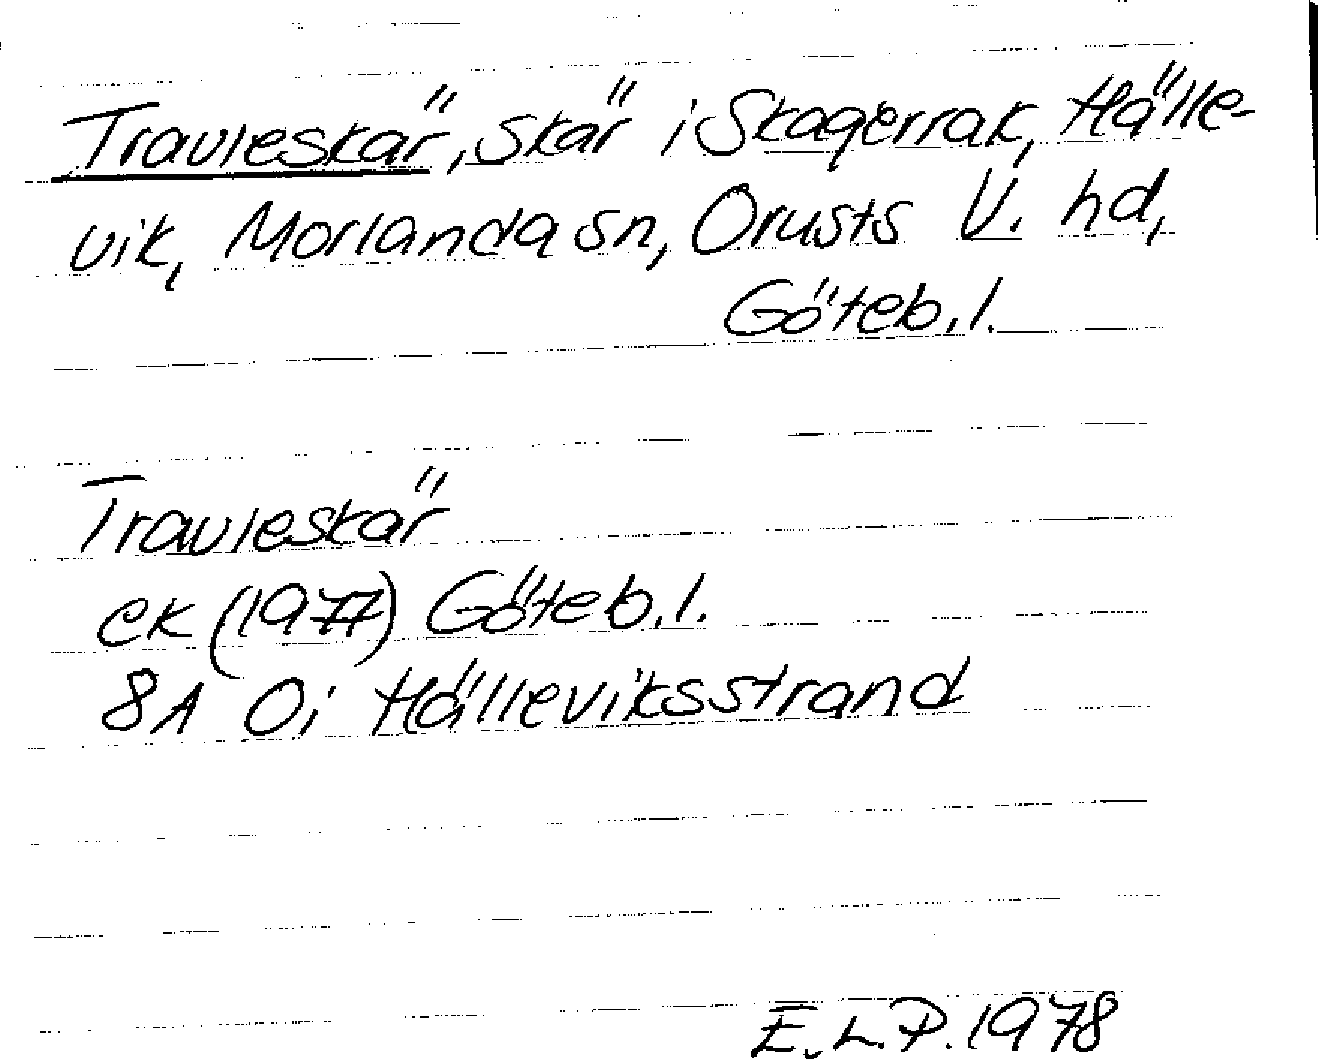 Travleskär, skär i Skagerrak, Hälle-
vik, Morlanda sn, Orusts V. hd,
Göteb. l.
Travleskär
ek (1977) Göteb. l.
8A 0i Hälleviksstrand
E.L.P. 1978